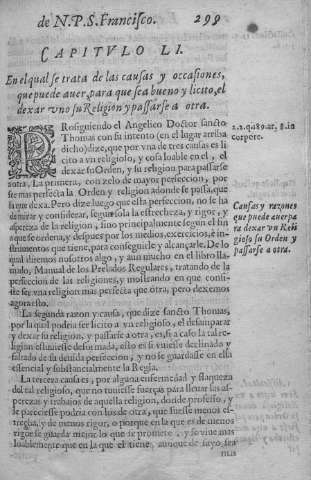 de N. P. S. Francisco. 299
CAPITVLO LI.
En el qual se trata de las causas y occasiones,
que puede auer, para que sea bueno y licito, el
dexar vno su Religion y passarse a otra.
PRosiguiendo el Angelico Doctor sancto
Thomas con su intento (en el lugar arriba
dicho) dize, que por vna de tres causas es li
cito a vn religioso, y cosa loable en el, el
dexar su Orden, y su religion para passarse
a otra. La primera, con zelo de mayor perfeccion, por
ser mas perfecta la Orden y religion adonde se passa, que
la que dexa. Pero dize luego que esta perfeccion, no se ha
de mirar y considerar, segun sola la estrecheza, y rigor, y
aspereza de la religion, sino principalmente segun el fin
a que se ordena, y despues por los medios, exercicios, è in-
strumentos que tiene, para conseguirle y alcançarle. De lo
qual diremos nosotros algo, y aun mucho en el libro lla-
mado, Manual de los Prelados Regulares, tratando de la
perfeccion de las religiones, y mostrando en que consi-
ste ser vna religion mas perfecta que otra, pero dexemos
agora esto.
La segunda razon y causa, que dize sancto Thomas,
por la qual podria ser licito a vn religioso, el desamparar
y dexar su religion, y passarse a otra, es, si a caso la tal re-
ligion estuuiesse deformada, esto es si vuiesse declinado y
faltado de su deuida perfeccion, y no se guardasse en ella
essencial y substancialmente la Regla.
La tercera causa es, por alguna enfermedad y flaqueza
del tal religioso, que no tuuiesse fuerças para lleuar las as-
perezas y trabajos de aquella religion, donde professo, y
le pareciesse podria con los de otra, que fuesse menos es-
trecha, y de menos rigor, o porque en la que es de menos
rigor se guarda mejor lo que se promete, y se viue mas
loablemente que en la que el tiene, aunque de suyo sea
mas
2.2.q.189.ar.8.in
corpore.
Causas y razones
que puede auer pa
ra dexar vn Reli
gioso su Orden y
passarse a otra.